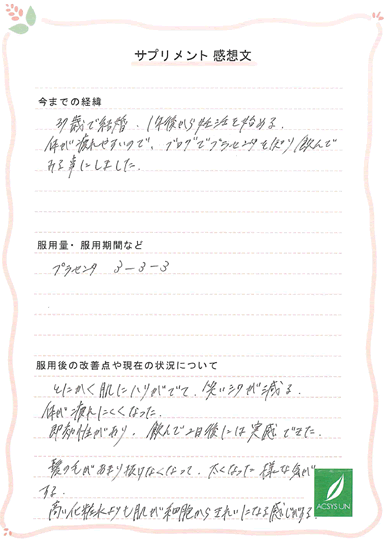 サプリメント 感想文
今までの経緯
37歳で結婚、1年後から妊活を始める。
体が疲れやすいので、ブログでプラセンタを知り飲んで
みる事にしました。
服用量・服用期間など
プラセンタ 3-3-3
服用後の改善点や現在の状況について
とにかく肌にハリがでて、笑いジワが減る。
体が疲れにくくなった。
即効性があり、飲んで2日後には実感できた。
髪の毛があまり抜けなくなって、太くなった様な気が
する。
高い化粧水よりも肌が細胞からきれいになる感じがする。
ACSYSUN